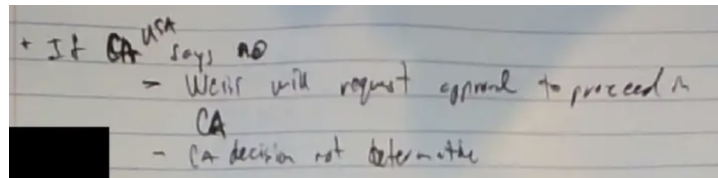 + If CA USA says no
- Weiss will request approval to proceed in
CA
- CA decision not determinative